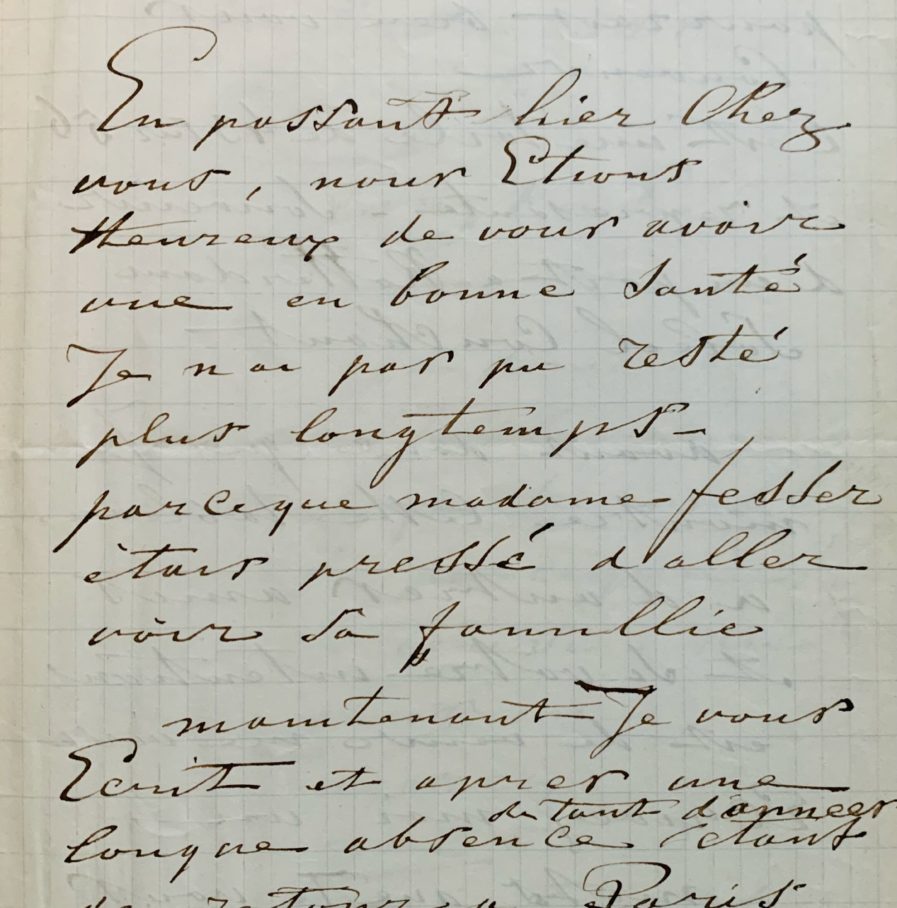 En passant hier Chez
vous, nous Etions
Heureux de vous avoir
vue en bonne Santé
Je n ai pas pu resté
plus longtemps-
parceque madame fesser
étais pressé d aller
voir sa famillie
maintenant Je vous
Ecrit et apres une
de tant d'années
longue absence étant
de retour a Paris